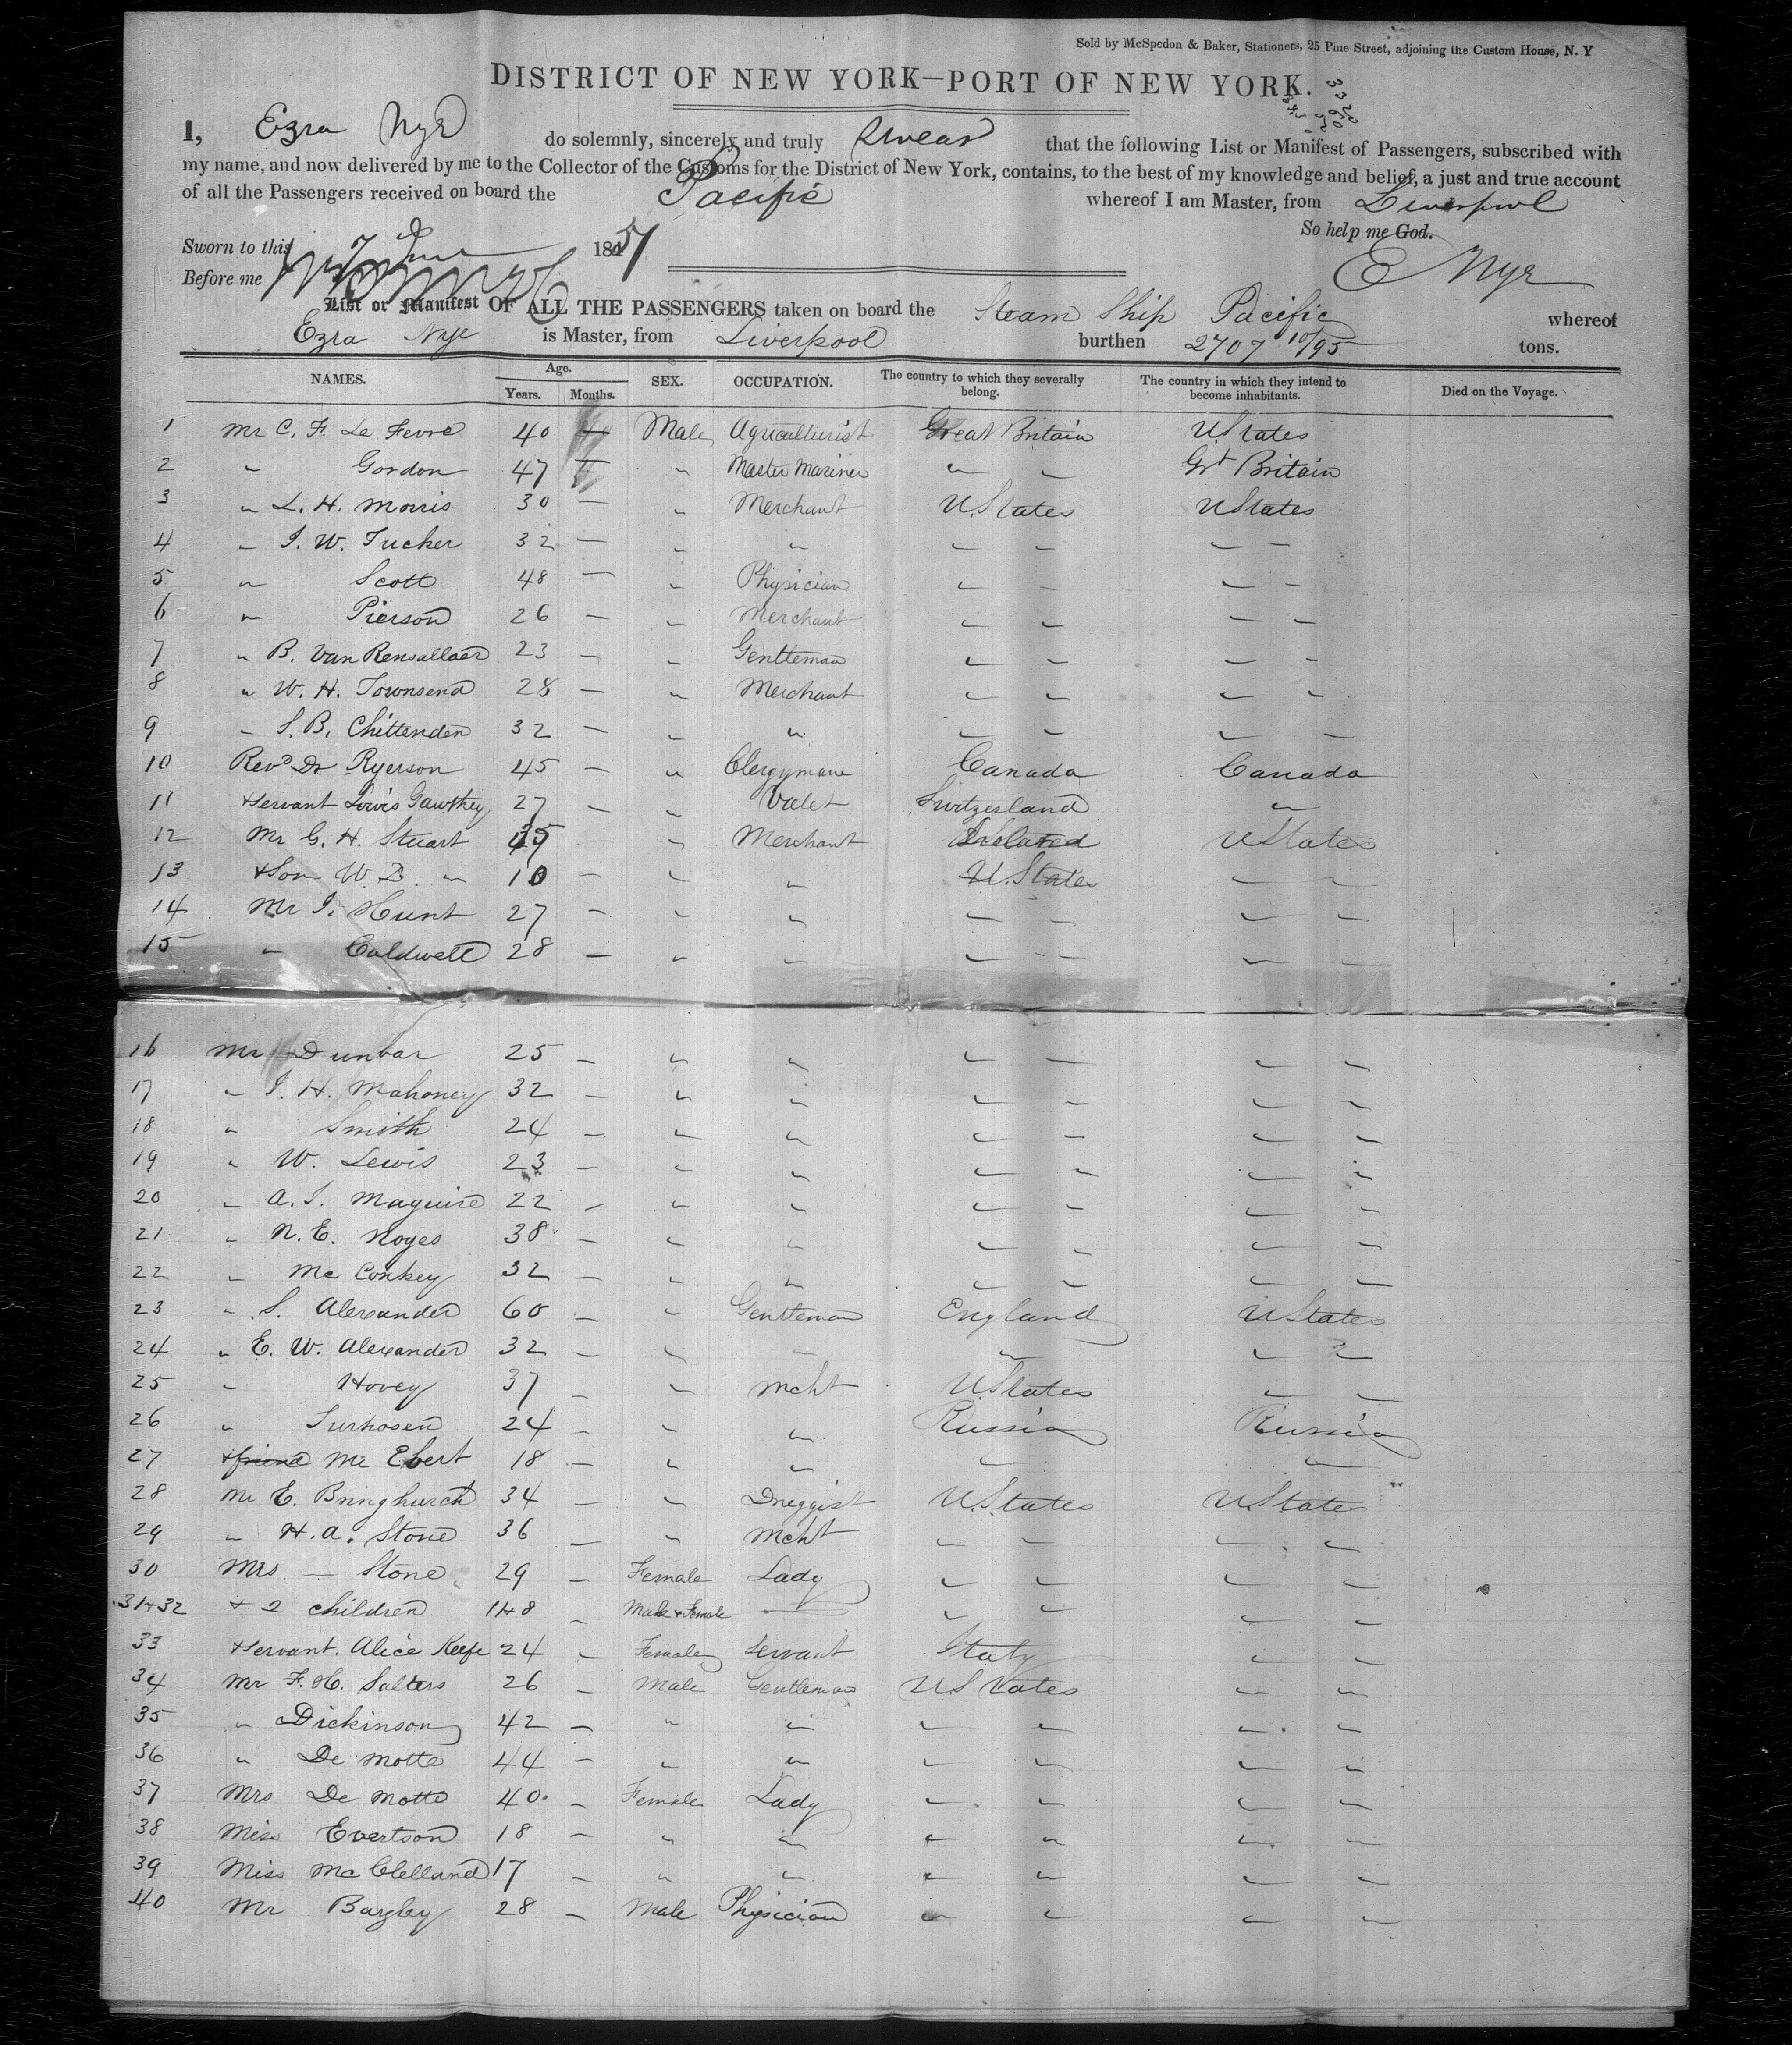 Sold by McSpedon & Baker, Stationers, 25 Pine Street, adjoining the Custom House, N. Y
DISTRICT OF NEW YORK—PORT OF NEW YORK.
I, Ezra Nye do solemnly, sincerely and truly swear that the following List or Manifest of Passengers, subscribed with
my name, and now delivered by me to the Collector of the Customs for the District of New York, contains, to the best of my knowledge and belief, a just and true account
of all the Passengers received on board the Pacific whereof I am Master, from Liverpool
So help me God.
Sworn to this 7 June 1851
Before me
E Nye
List or Manifest OF ALL THE PASSENGERS taken on board the Steam Ship Pacific whereof
Ezra Nye is Master, from Liverpool burthen 2707 10/95 tons.
NAMES. Age. Years. Months. SEX. OCCUPATION. The country to which they severally belong. The country in which they intend to become inhabitants. Died on the Voyage.
1 Mr C. F. Le Fevre 40 — Male Agriculturist Great Britain U States
2 " Gordon 47 — " Master Mariner " " Grt Britain
3 " L. H. Morris 30 — " Merchant U. States U States
4 " J. W. Tucker 32 — " " " " " "
5 " Scott 48 — " Physician " " " "
6 " Pierson 26 — " Merchant " " " "
7 " B. Van Rensallaer 23 — " Gentleman " " " "
8 " W. H. Townsend 28 — " Merchant " " " "
9 " S. B. Chittenden 32 — " " " " " "
10 Revd Dr Ryerson 45 — " Clergyman Canada Canada
11 & Servant Lewis Gawthey 27 — " Valet Switzerland "
12 Mr G. H. Stuart 35 — " Merchant Ireland U States
13 & Son W. D. " 10 — " " U. States " "
14 Mr J. Hunt 27 — " " " " " "
15 " Caldwell 28 — " " " " " "
16 Mr Dunbar 25 — " " " " " "
17 " J. H. Mahoney 32 — " " " " " "
18 " Smith 24 — " " " " " "
19 " W. Lewis 23 — " " " " " "
20 " A. J. Maguire 22 — " " " " " "
21 " N. E. Noyes 38 — " " " " " "
22 " Mc Conkey 32 — " " " " " "
23 " S. Alexander 60 — " Gentleman England U States
24 " E. W. Alexander 32 — " " " " "
25 " Hovey 37 — " Mcht U States " "
26 " Turhosen 24 — " " Russia Russia
27 & friend Mr Ebert 18 — " " " "
28 Mr E. Bringhurst 34 — " Druggist U States U States
29 " H. A. Stone 36 — " Mcht " " " "
30 Mrs — Stone 29 — Female Lady " " " "
31 & 32 & 2 children 11 & 8 — Male & Female — " " " "
33 & Servant. Alice Keefe 24 — Female Servant Italy " "
34 Mr F. H. Salters 26 — Male Gentleman U States " "
35 " Dickinson 42 — " " " " " "
36 " De Motte 44 — " " " " " "
37 Mrs De Motte 40 — Female Lady " " " "
38 Miss Evertson 18 — " " " " " "
39 Miss McClelland 17 — " " " " " "
40 Mr Bagley 28 — Male Physician " " " "